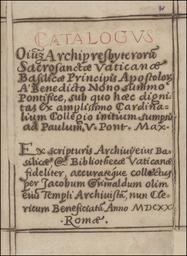 CATALOGVS
Oiũ3 Archipresbyterorũ
Sacrosanctæ Vaticanæ
Basilicæ Principis Apostolorũ
A Benedicto Nono summo
Pontifice, sub quo hæc digni
tas Ex amplissimo Cardina
lium Collegio initium sumpsit
ad Paulum V. Pont. Max.
Ex scripturis Archivij eius Ba
silicæ et Bibliothecæ Vaticanæ
fideliter, accuratequæ collectus
per Iacobum Grimaldum olim
eius Templi Archivistã, nun Cle
ricum Beneficiatũ. Anno MDCXX
Romæ.